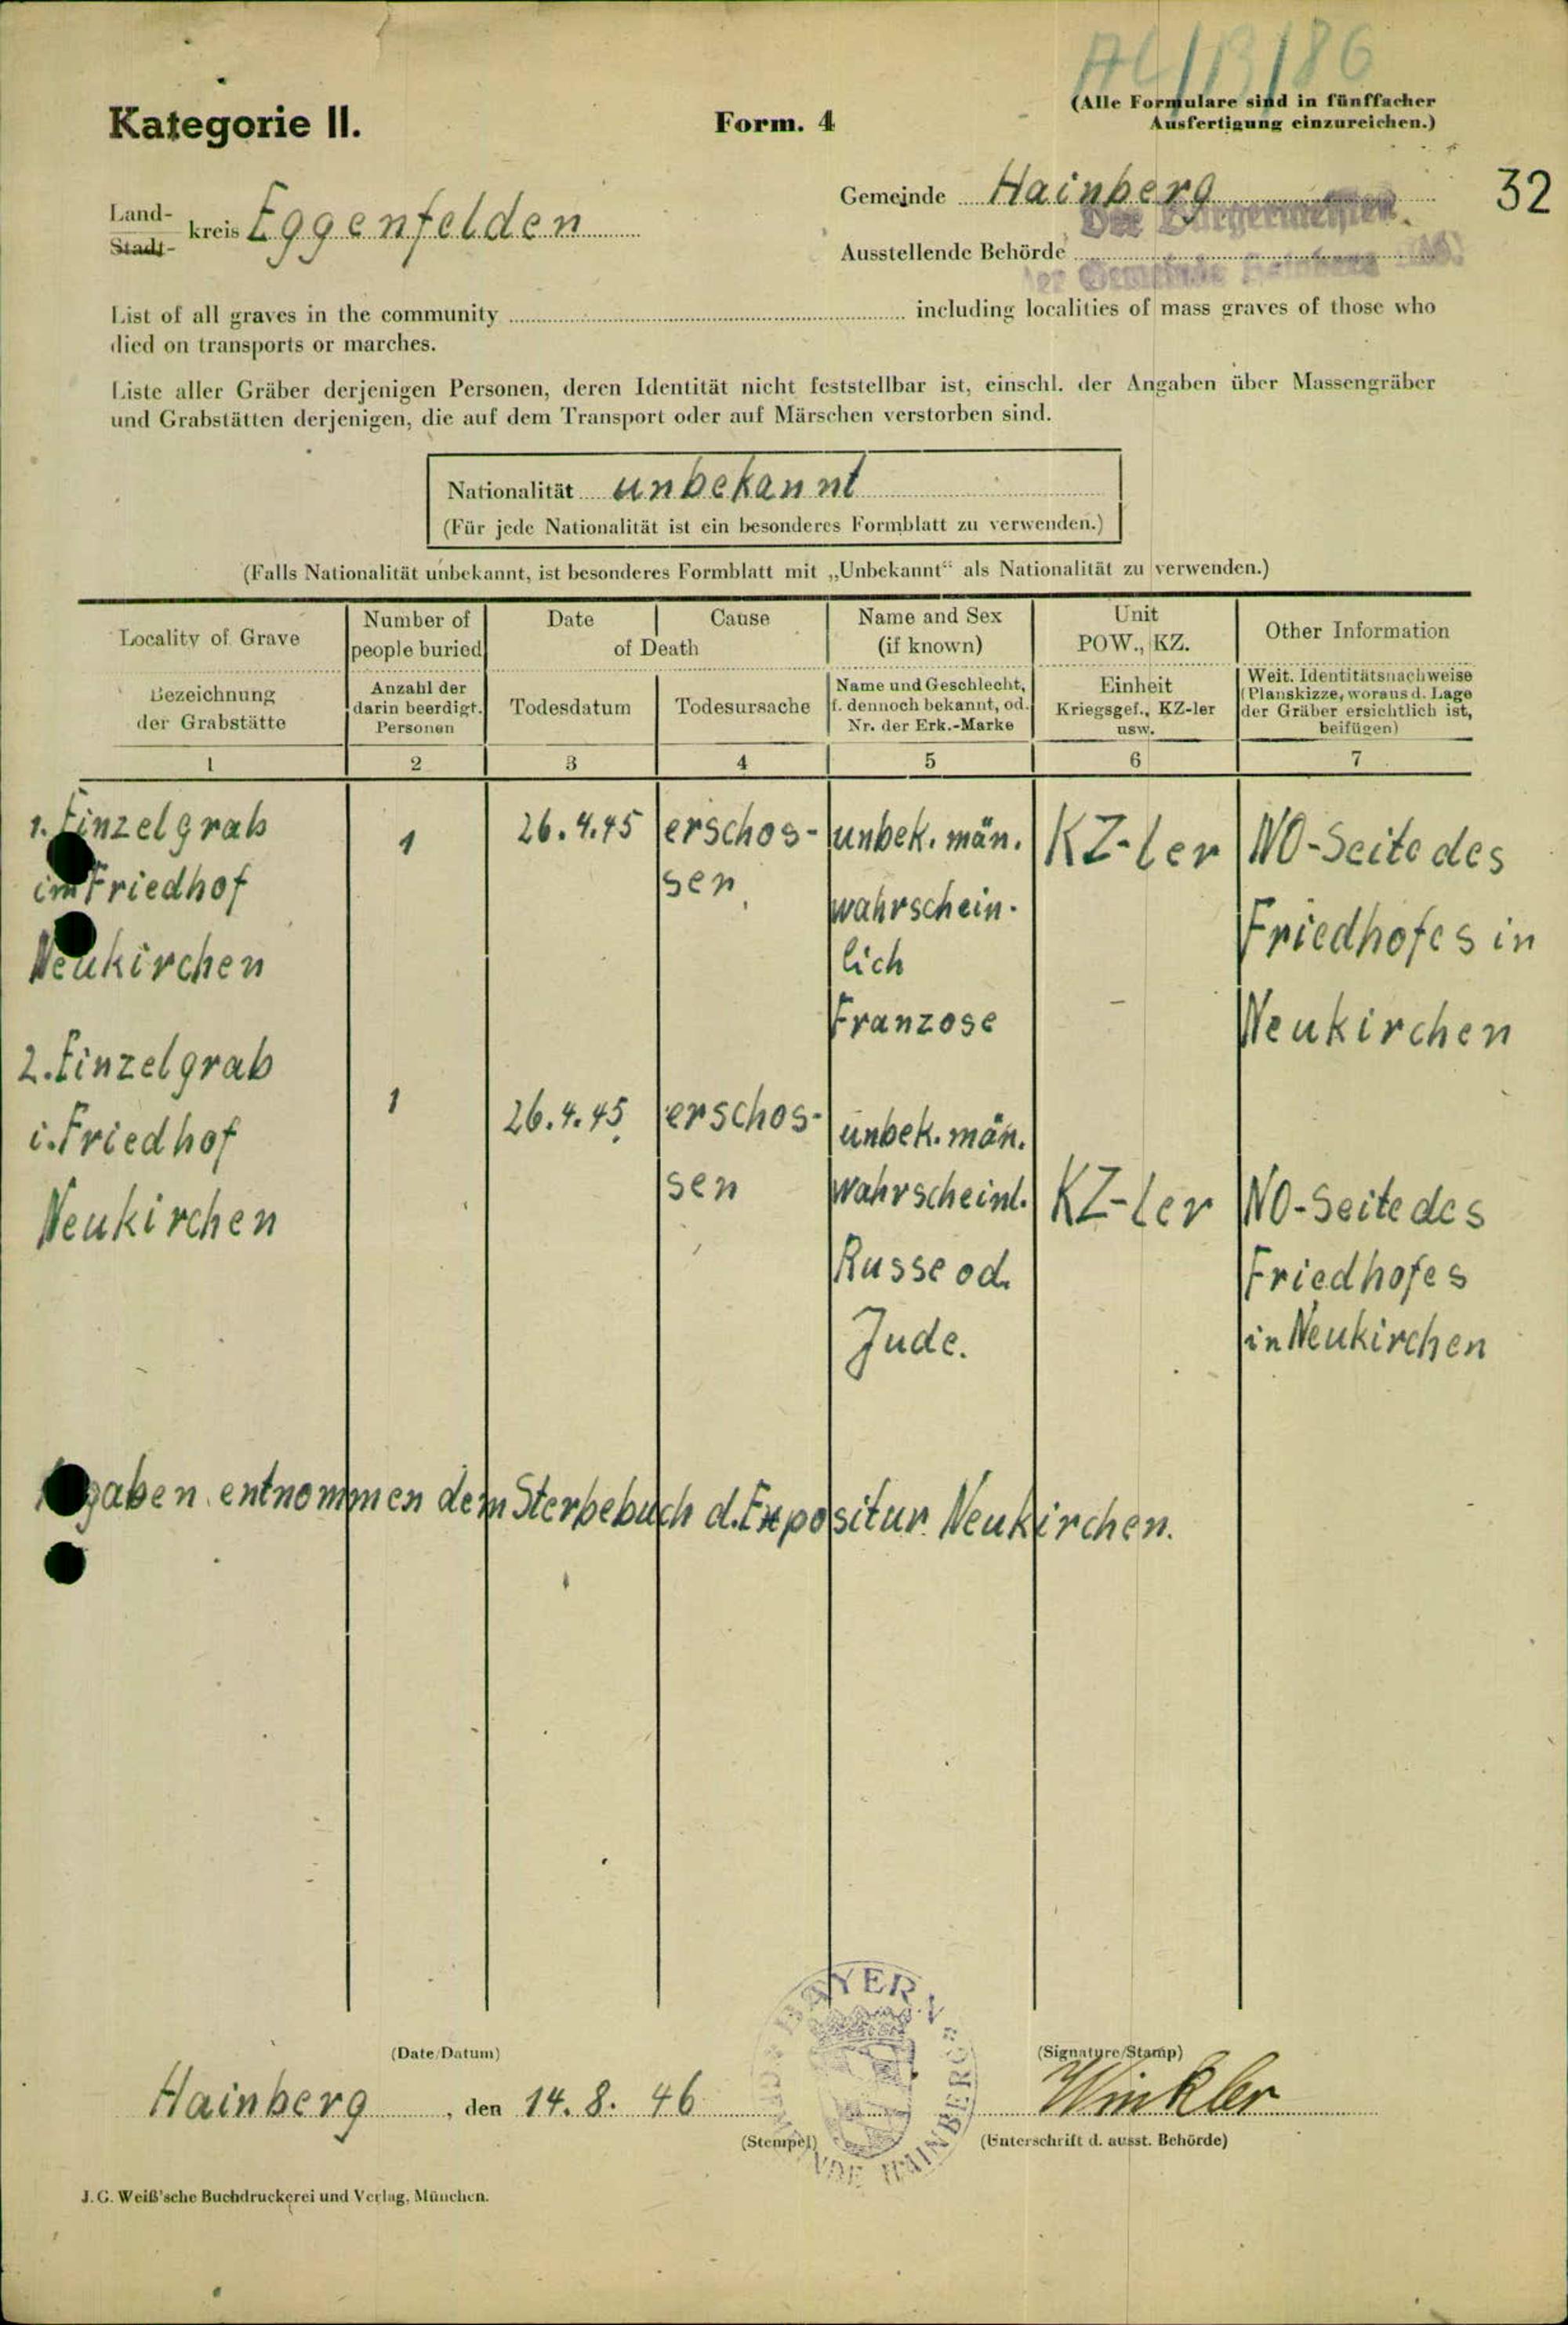 AC/13/86
Kategorie II.
Form. 4
(Alle Formulare sind in fünffacher
Ausfertigung einzureichen.)
32
Land-
Stadt-
kreis Eggenfelden
Gemeinde Hainberg
Der Bürgermeister
Ausstellende Behörde
der Gemeinde Hainberg
List of all graves in the community including localities of mass graves of those who
died on transports or marches.
Liste aller Gräber derjenigen Personen, deren Identität nicht feststellbar ist, einschl. der Angaben über Massengräber
und Grabstätten derjenigen, die auf dem Transport oder auf Märschen verstorben sind.
Nationalität unbekannt
(Für jede Nationalität ist ein besonderes Formblatt zu verwenden.)
(Falls Nationalität unbekannt, ist besonderes Formblatt mit „Unbekannt“ als Nationalität zu verwenden.)
Locality of Grave
Number of
people buried
Date Cause
of Death
Name and Sex
(if known)
Unit
POW., KZ.
Other Information
Bezeichnung
der Grabstätte
Anzahl der
darin beerdigt.
Personen
Todesdatum
Todesursache
Name und Geschlecht,
f. dennoch bekannt, od.
Nr. der Erk.-Marke
Einheit
Kriegsgef., KZ-ler
usw.
Weit. Identitätsnachweise
(Planskizze, woraus d. Lage
der Gräber ersichtlich ist,
beifügen)
1 2 3 4 5 6 7
1. Einzelgrab
im Friedhof
Neukirchen
1
26.4.45
erschos-
sen
unbek. män.
wahrschein-
lich
Franzose
KZ-ler
NO-Seite des
Friedhofes in
Neukirchen
2. Einzelgrab
i. Friedhof
Neukirchen
1
26.4.45
erschos-
sen
unbek. män.
wahrscheinl.
Russe od.
Jude.
KZ-ler
NO-Seite des
Friedhofes
in Neukirchen
gaben entnommen dem Sterbebuch d. Expositur Neukirchen.
(Date/Datum)
(Signature/Stamp)
Hainberg, den 14. 8. 46
Winkler
(Stempel)
(Unterschrift d. ausst. Behörde)
BAYER.
HAINBERG
J. G. Weiß'sche Buchdruckerei und Verlag, München.